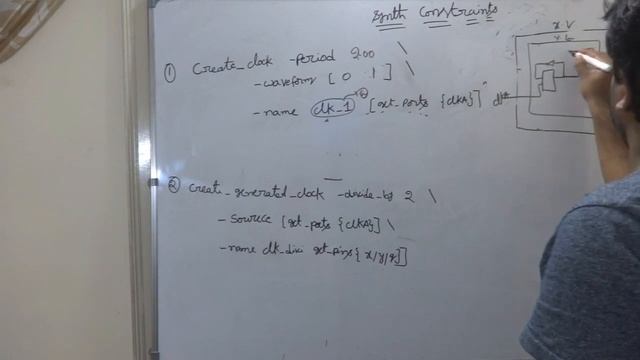 Synth Constraints
① Create_clock -period 200 \
-waveform [0 1] \
-name clk_1 [get_ports {clkA}]
② create_generated_clock -divide_by 2 \
-source [get_ports {clkA}] \
-name clk_div get_pins{x/y/q}]
x.v